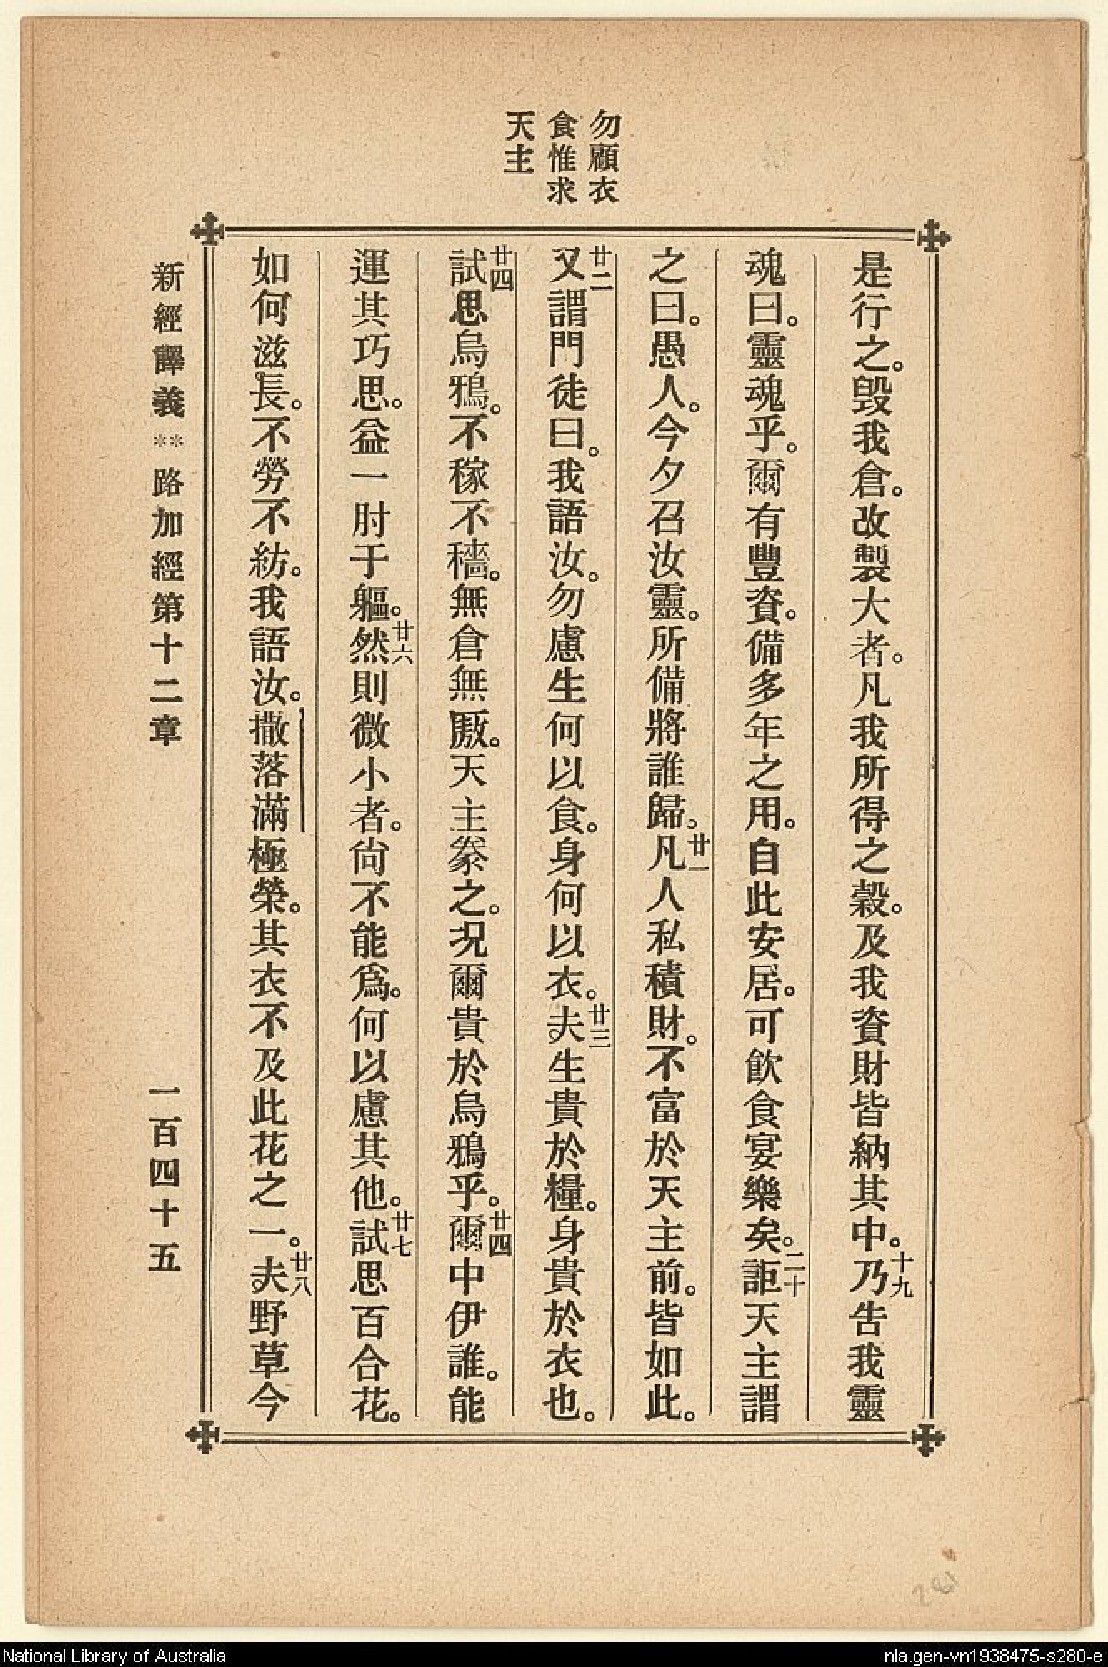 勿顧衣
食惟求
天主
是行之。毀我倉。改製大者。凡我所得之穀。及我資財皆納其中。十九乃吿我靈
魂曰。靈魂乎。爾有豐資。備多年之用。自此安居。可飲食宴樂矣。二十詎天主謂
之曰。愚人。今夕召汝靈。所備將誰歸。廿一凡人私積財。不富於天主前。皆如此。
廿二又謂門徒曰。我語汝。勿慮生何以食。身何以衣。廿三夫生貴於糧。身貴於衣也。
廿四試思烏鴉。不稼不穡。無倉無厫。天主豢之。况爾貴於烏鴉乎。廿四爾中伊誰。能
運其巧思。益一肘于軀。廿六然則微小者。尙不能爲。何以慮其他。廿七試思百合花。
如何滋長。不勞不紡。我語汝。撒落滿極榮。其衣不及此花之一。廿八夫野草今
新經譯義**路加經第十二章 一百四十五
281
National Library of Australia
nla.gen-vn1938475-s280-e